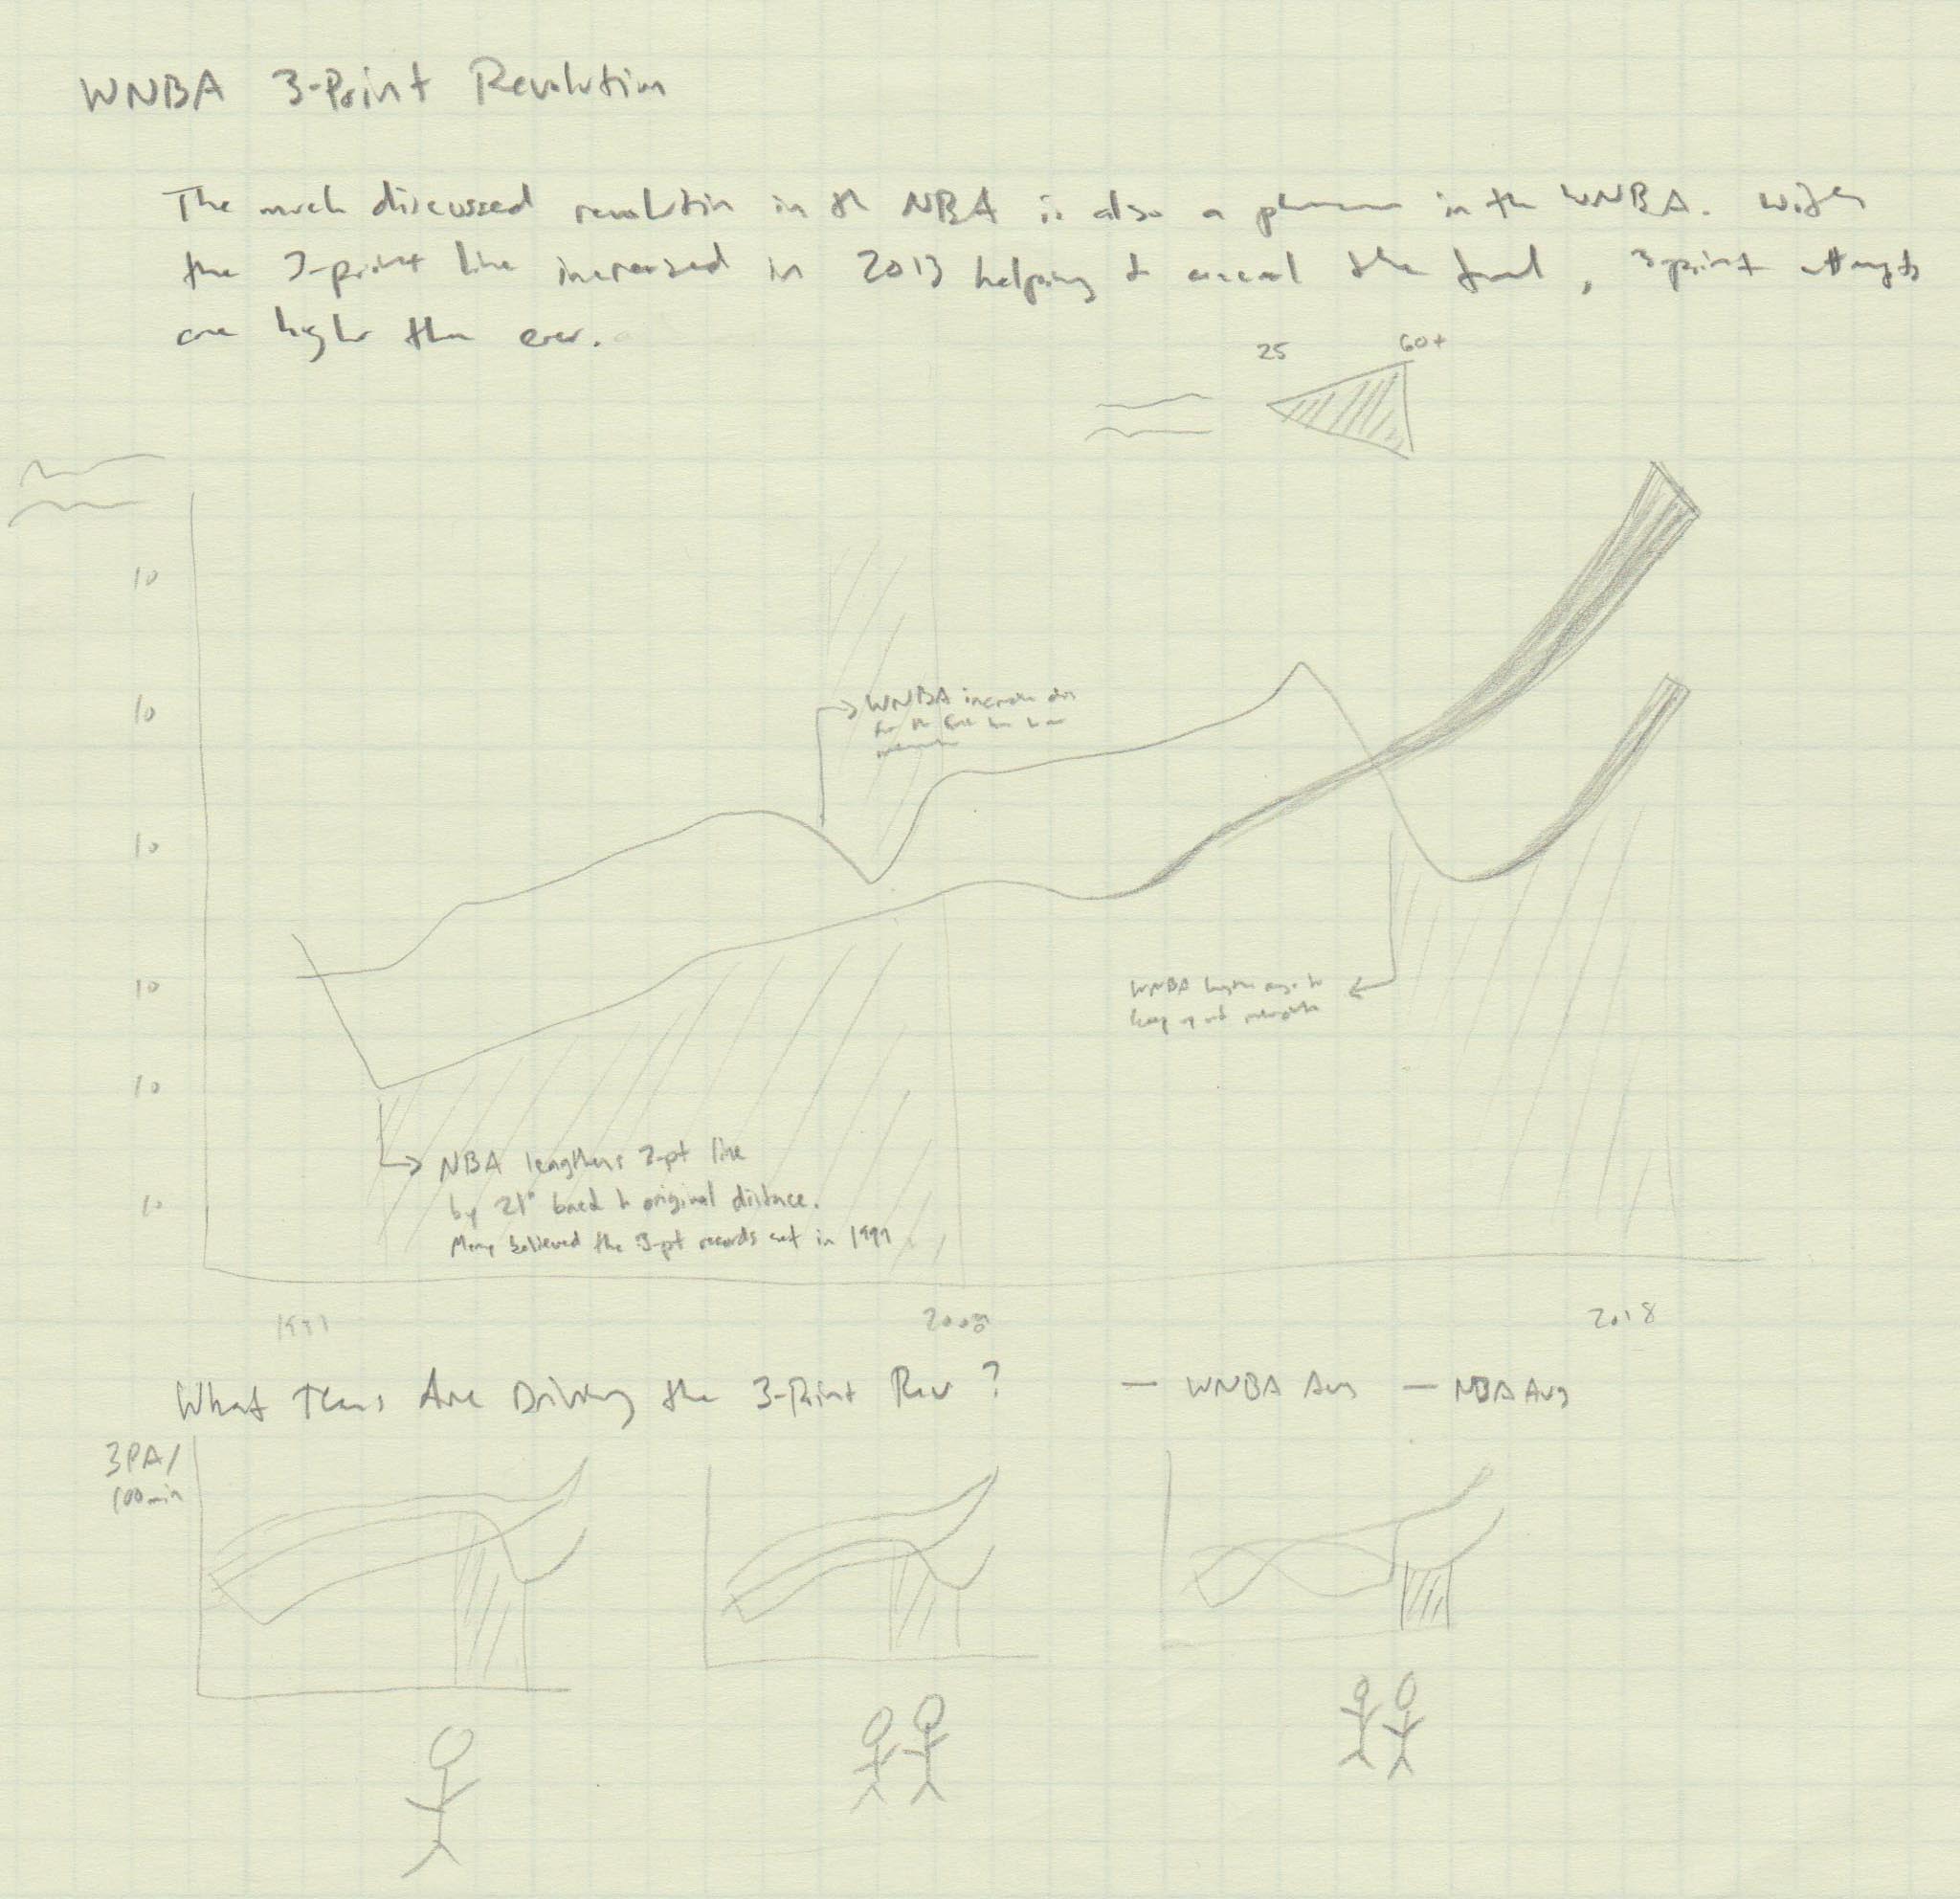 WNBA 3-Point Revolution
The much discussed revolution in th NBA is also a in the WNBA. With
the 3-point line increased in 2013 helping to the , 3-point attempts
are higher than ever.
25 60+
10
10
WNBA increases
for the
10
10
WNBA
keep up
10
NBA lengthens 3-pt line
by 21" back to original distance.
10
Many believed the 3-pt records set in 1997
1997 2008 2018
What Teams Are Driving the 3-Point Rev?
— WNBA Avg — NBA Avg
3PA/
100min